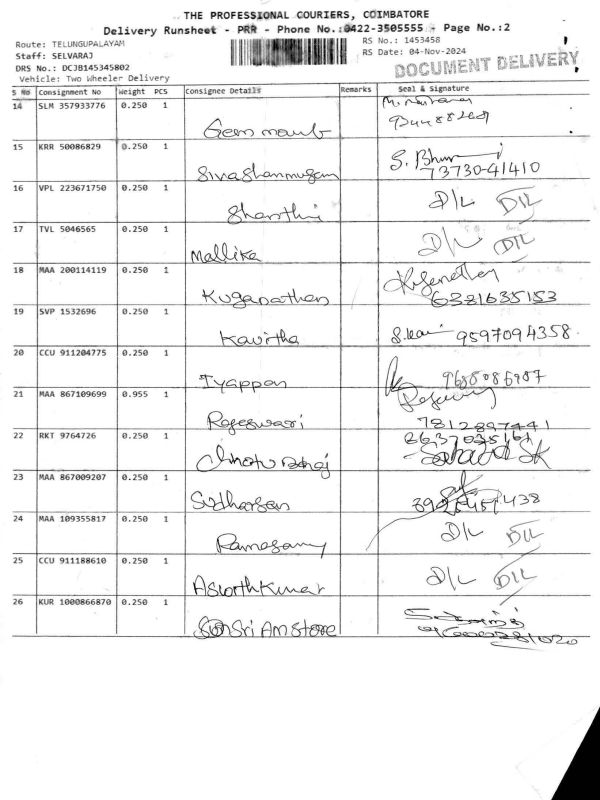 THE PROFESSIONAL COURIERS, COIMBATORE
Delivery Runsheet - PRR - Phone No.:0422-3505555 - Page No.:2
Route: TELUNGUPALAYAM
RS No.: 1453458
Staff: SELVARAJ
RS Date: 04-Nov-2024
DRS No.: DCJB145345802
DOCUMENT DELIVERY
Vehicle: Two Wheeler Delivery
S No Consignment No Weight PCS Consignee Details Remarks Seal & Signature
14 SLM 357933776 0.250 1
15 KRR 50086829 0.250 1
Sivashanmugam S. 73730-41410
16 VPL 223671750 0.250 1
Shanthi D/L D/L
17 TVL 5046565 0.250 1
Mallika D/L D/L
18 MAA 200114119 0.250 1
Kuganathan 6381635153
19 SVP 1532696 0.250 1
Kavitha 9597094358
20 CCU 911204775 0.250 1
Iyappan
21 MAA 867109699 0.955 1
Rajeswari 7812897441
22 RKT 9764726 0.250 1
23 MAA 867009207 0.250 1
Sutharsan
24 MAA 109355817 0.250 1
Ramasamy D/L D/L
25 CCU 911188610 0.250 1
AswothKumar D/L D/L
26 KUR 1000866870 0.250 1
Sri Am Store